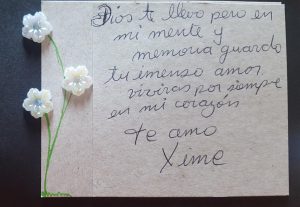 Dios te llevo pero en
mi mente y
memoria guardo
tu imenso amor
viviras por siempre
en mi corazón
te amo
Xime